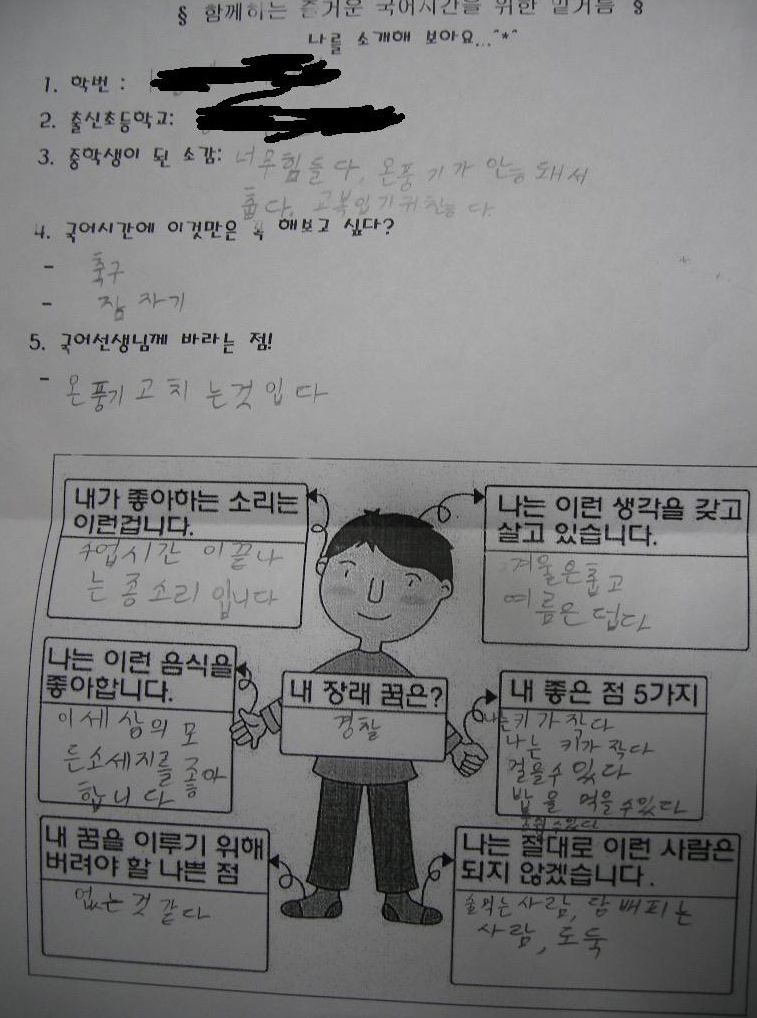 § 함께하는 즐거운 국어시간을 위한 밑거름 §
나를 소개해 보아요...^*^
1. 학번 :
2. 출신초등학교:
3. 중학생이 된 소감: 너무힘들다, 온풍기가 안능돼서
춥다. 교복입기귀찮능다.
4. 국어시간에 이것만은 꼭 해보고 싶다?
- 축구
- 잠 자기
5. 국어선생님께 바라는 점!
- 온풍기고치는것입다
내가 좋아하는 소리는
이런겁니다.
수업시간 이끝나
는 종소리 입니다
나는 이런 생각을 갖고
살고 있습니다.
겨울은춥고
여름은 덥다
나는 이런 음식을
좋아합니다.
이세삼의 모
든소세지를 좋아
합니다
내 장래 꿈은?
경찰
내 좋은 점 5가지
나는키가작다
나는 키가작다
걸을수 있다
밥을 먹을수있다
숨쉴수있다
내 꿈을 이루기 위해
버려야 할 나쁜 점
없는것 같다
나는 절대로 이런 사람은
되지 않겠습니다.
술먹는사람, 담배피는
사람, 도둑